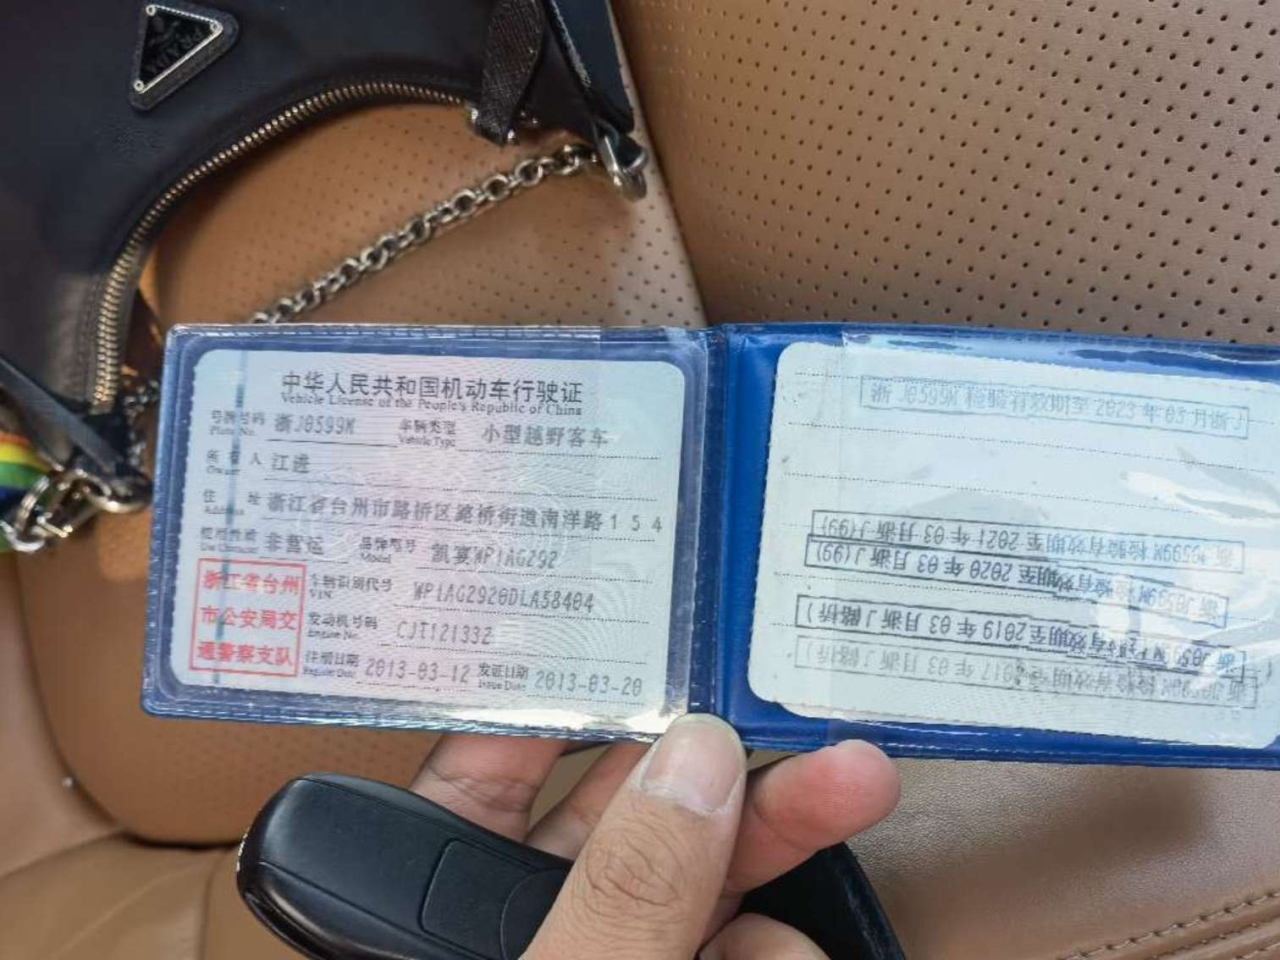 PRADA
中华人民共和国机动车行驶证
Vehicle License of the People's Republic of China
号牌号码 浙J0599M 车辆类型 小型越野客车
Plate No. Vehicle Type
所有人 江进
Owner
住址 浙江省台州市路桥区路桥街道南洋路154
Address
使用性质 非营运 品牌型号 凯宴WP1AG292
Use Character Model
浙江省台州
市公安局交
通警察支队
车辆识别代号 WP1AG2920DLA58404
VIN
发动机号码 CJT121332
Engine No.
注册日期 2013-03-12 发证日期 2013-03-20
Register Date Issue Date
浙J0599M检验有效期至2023年03月浙J
浙J0599M检验有效期至2021年03月浙J(99)
浙J0599M检验有效期至2020年03月浙J(99)
浙J0599M检验有效期至2019年03月浙J(路桥)
浙J0599M检验有效期至2017年03月浙J(路桥)